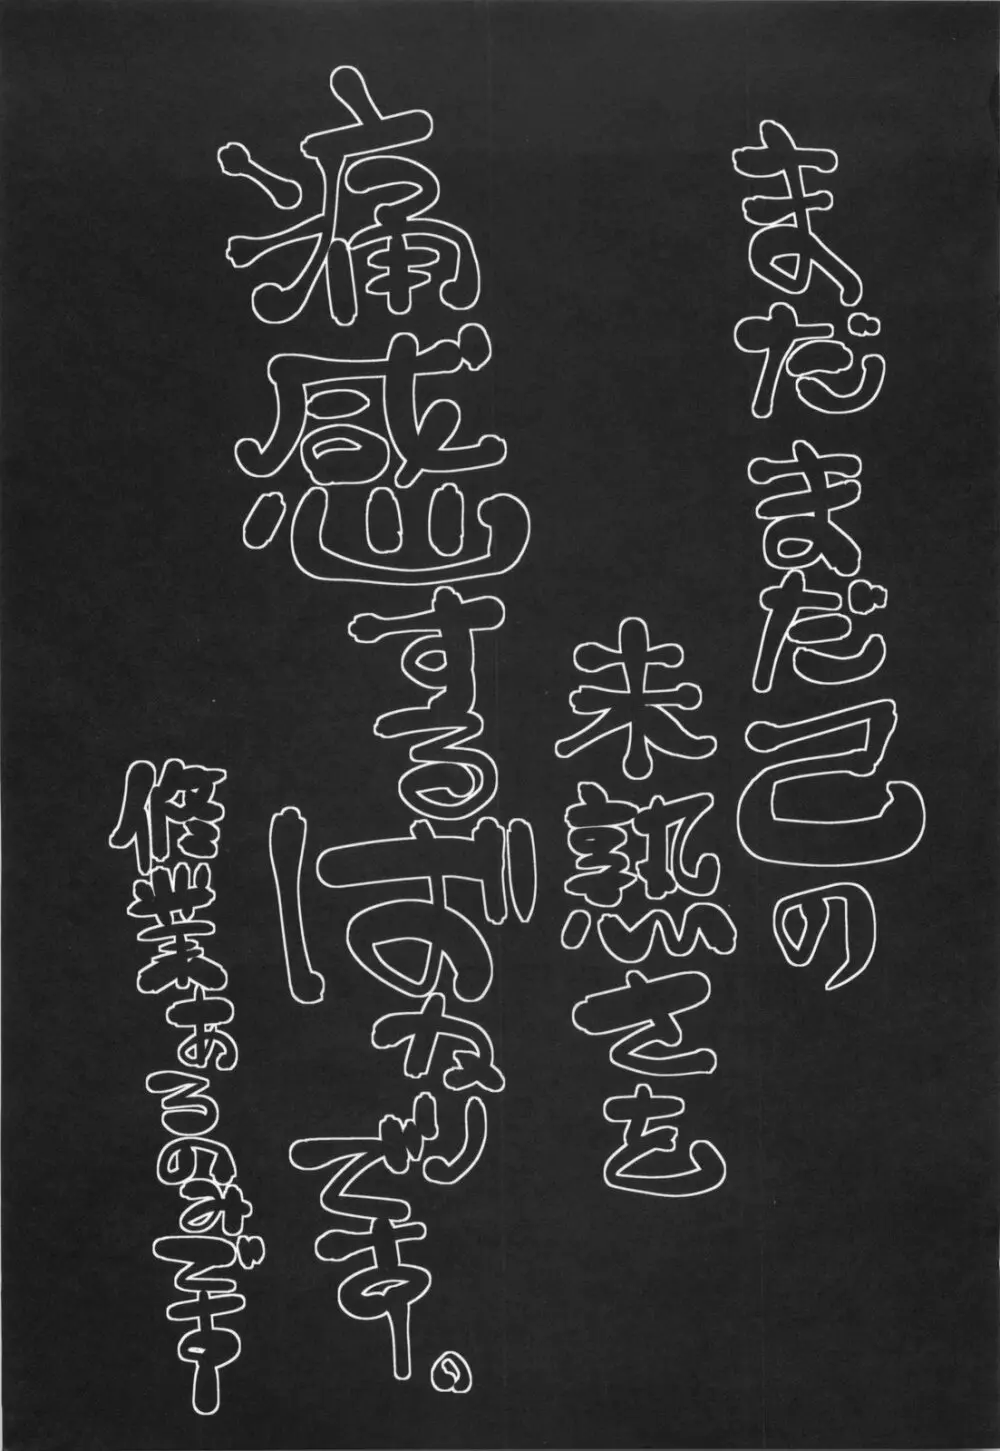 まだまだ己の
未熟さを
痛感するばかりです。
修業あるのみです